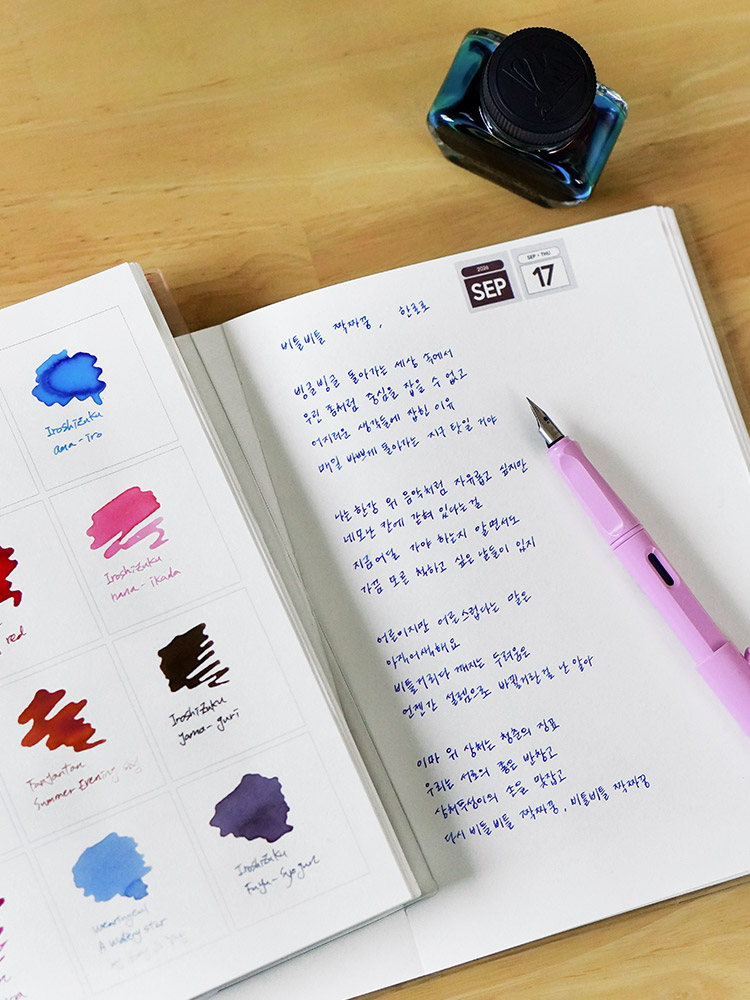 2026
SEP
SEP · THU
17
비틀비틀 짝짜꿍, 한로로
빙글빙글 돌아가는 세상 속에서
우린 춤처럼 중심을 잡을 수 없고
어지러운 생각들에 잡힌 이유
매일 바쁘게 돌아가는 지구 탓일 거야
나는 한강 위 음악처럼 자유롭고 싶지만
네모난 칸에 갇혀 있다는 걸
지금 어딜 가야 하는지 알면서도
가끔 모른 척하고 싶은 날들이 있지
어른이지만 어른스럽다는 말은
아직 어색해요
비틀거리다 깨지는 두려움은
언젠간 설렘으로 바뀔거란 걸 난 알아
이마 위 상처는 청춘의 징표
우리는 서로의 좋은 반창고
상처투성이의 손을 맞잡고
다시 비틀비틀 짝짜꿍, 비틀비틀 짝짜꿍
Iroshizuku
ama-iro
Iroshizuku
hana-ikada
red
Iroshizuku
yama-guri
Funjantan
Summer Evening
Iroshizuku
Fuyu-syogun
Wearingeul